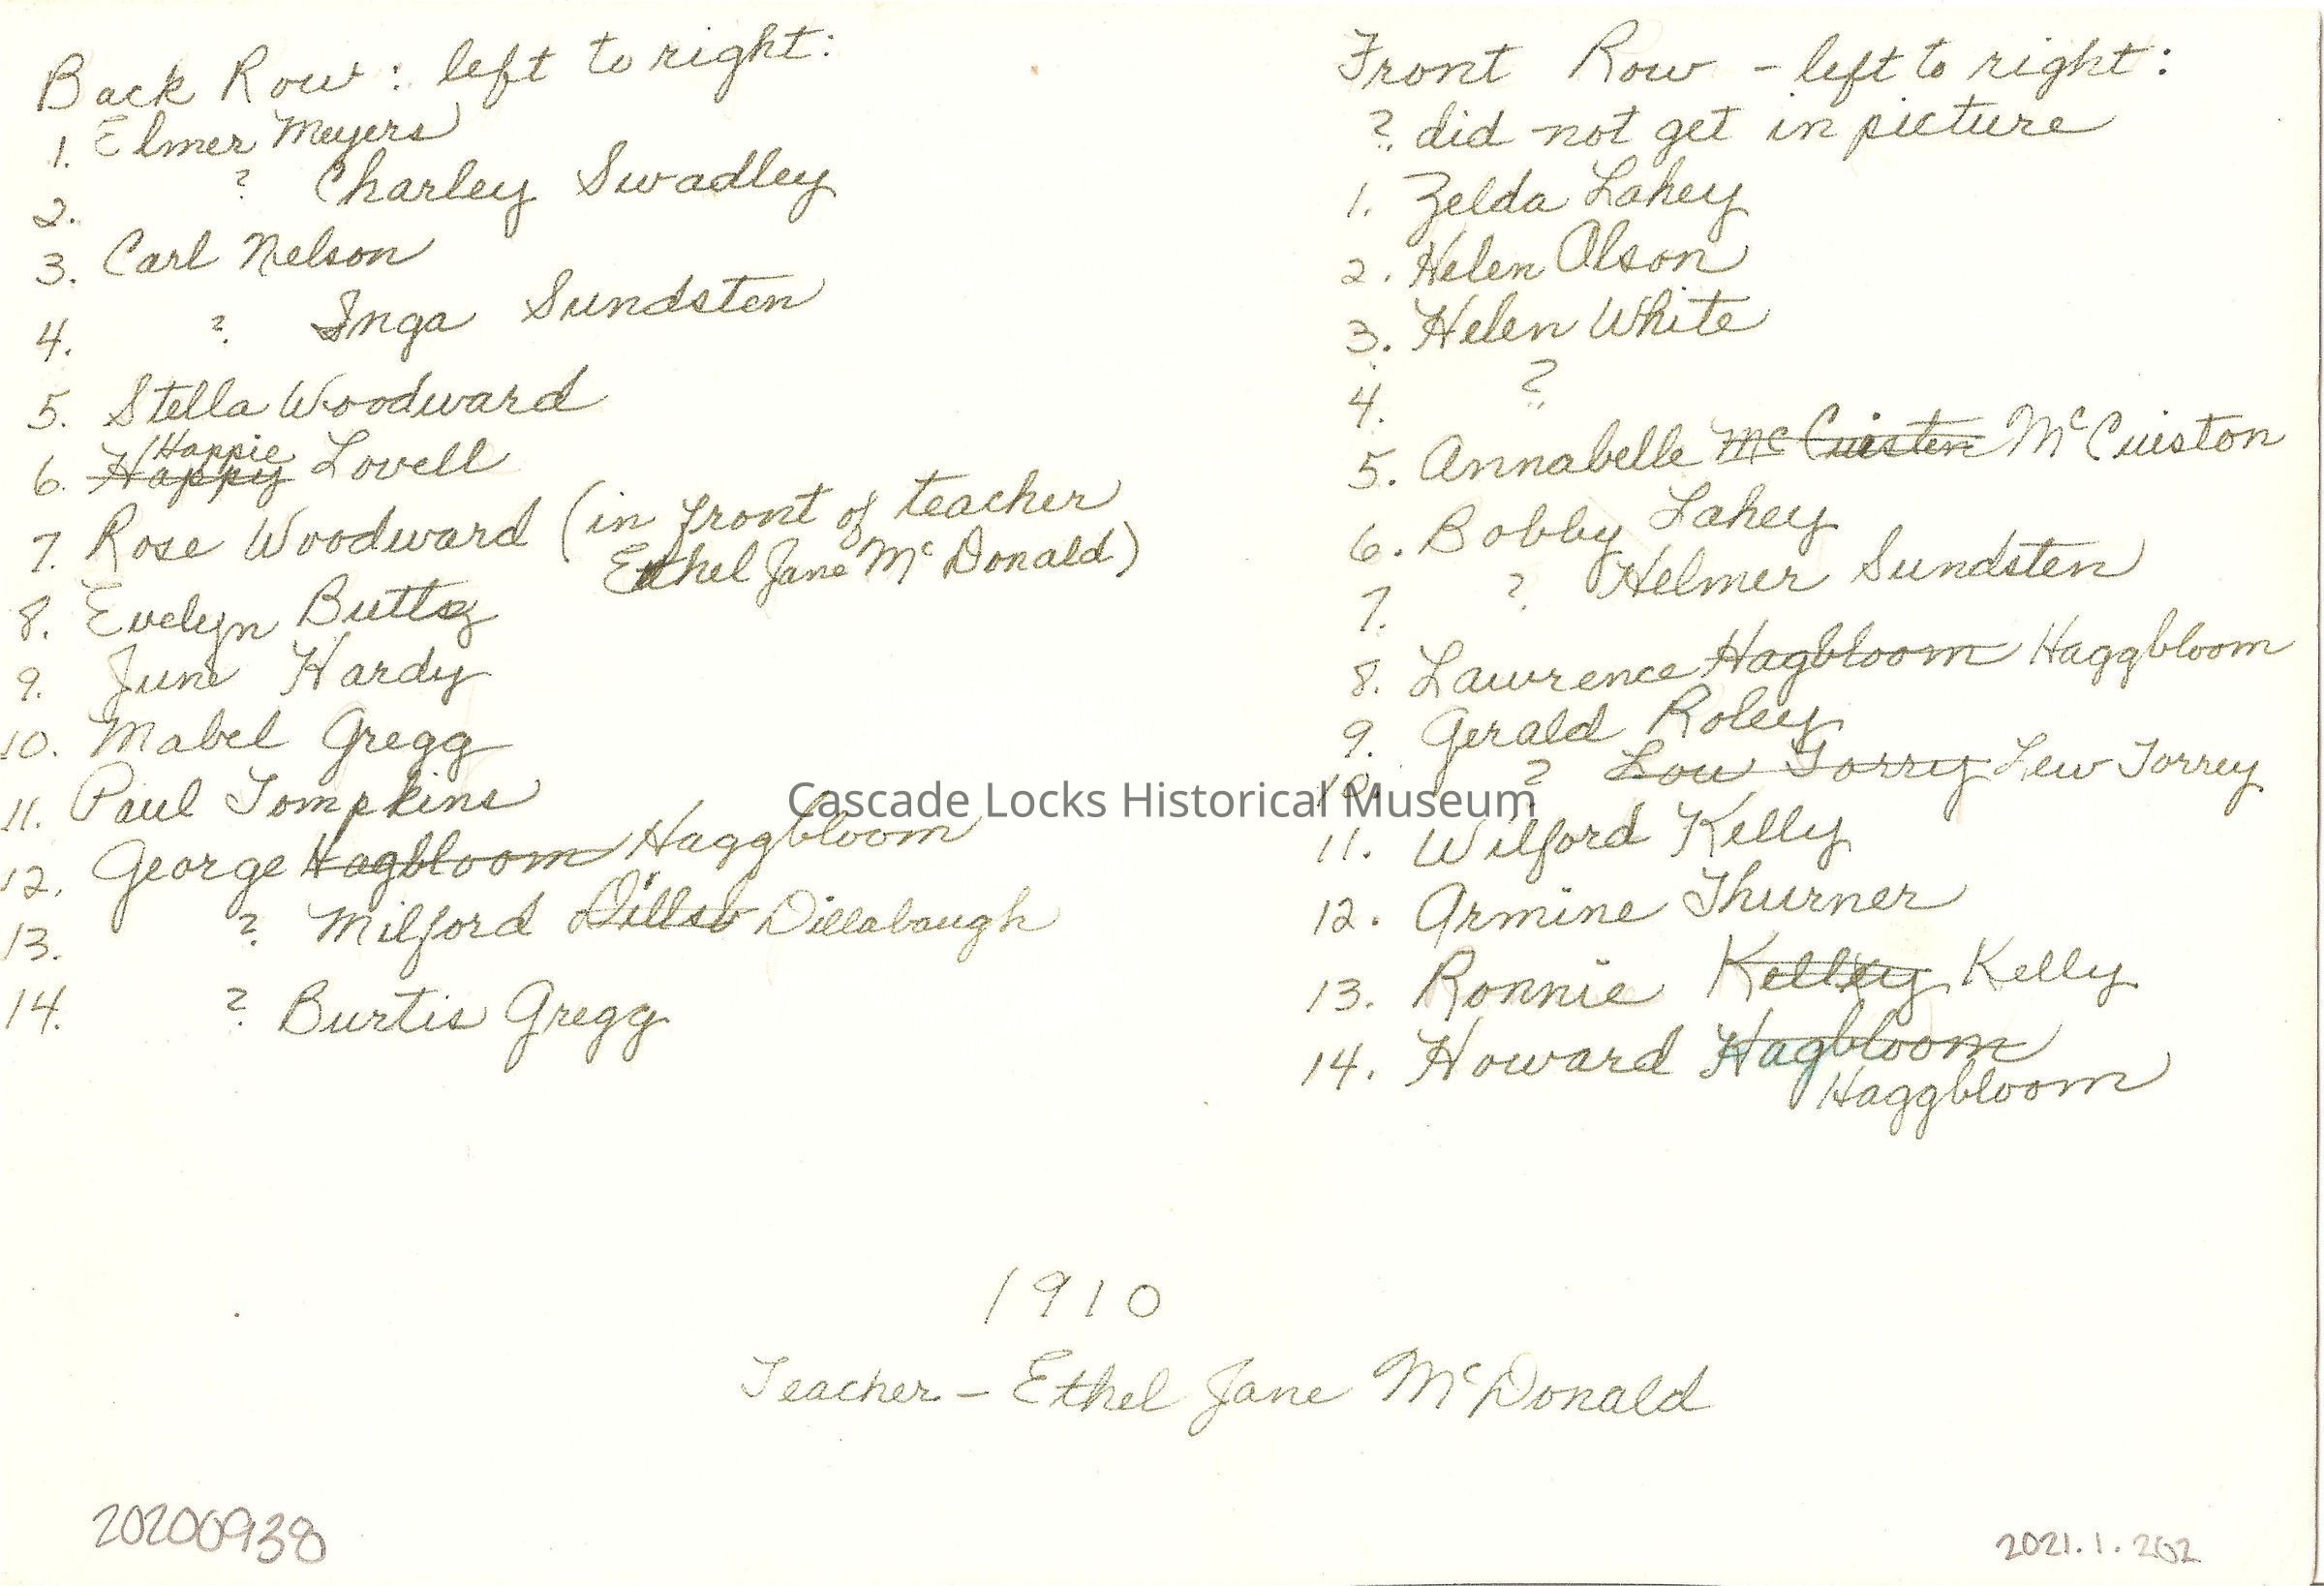 Back Row: left to right:
1. Elmer Meyers
2. ? Charley Swadley
3. Carl Nelson
4. ? Inga Sundsten
5. Stella Woodward
6. Happy Happie Lovell
7. Rose Woodward (in front of teacher
Ethel Jane McDonald)
8. Evelyn Buttz
9. June Hardy
10. Mabel Gregg
11. Paul Tompkins
12. George Hagbloom Haggbloom
13. ? Milford Dillab Dillabaugh
14. ? Burtis Gregg
Front Row - left to right:
? did not get in picture
1. Zelda Lahey
2. Helen Olson
3. Helen White
4. ?
5. Annabelle McCuisten McCuiston
6. Bobby Lahey
7. ? Helmer Sundsten
8. Lawrence Hagbloom Haggbloom
9. Gerald Roley
10. ? Lou Torry Lew Torrey
11. Wilford Kelly
12. Armine Thurner
13. Ronnie Kelley Kelly
14. Howard Hagbloom
Haggbloom
Cascade Locks Historical Museum
1910
Teacher - Ethel Jane McDonald
20200938
2021.1.202